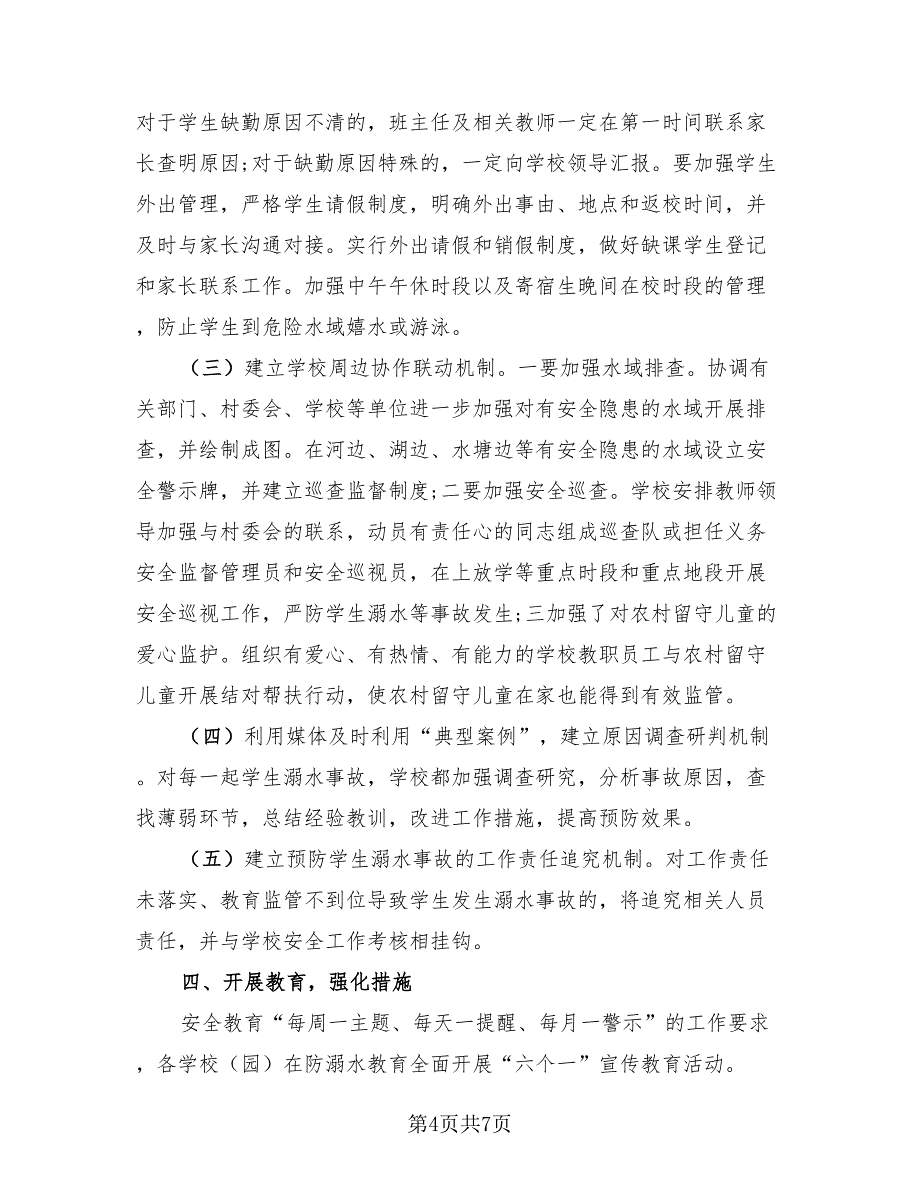 对于学生缺勤原因不清的，班主任及相关教师一定在第一时间联系家
长查明原因;对于缺勤原因特殊的，一定向学校领导汇报。要加强学生
外出管理，严格学生请假制度，明确外出事由、地点和返校时间，并
及时与家长沟通对接。实行外出请假和销假制度，做好缺课学生登记
和家长联系工作。加强中午午休时段以及寄宿生晚间在校时段的管理
，防止学生到危险水域嬉水或游泳。
（三）建立学校周边协作联动机制。一要加强水域排查。协调有
关部门、村委会、学校等单位进一步加强对有安全隐患的水域开展排
查，并绘制成图。在河边、湖边、水塘边等有安全隐患的水域设立安
全警示牌，并建立巡查监督制度;二要加强安全巡查。学校安排教师领
导加强与村委会的联系，动员有责任心的同志组成巡查队或担任义务
安全监督管理员和安全巡视员，在上放学等重点时段和重点地段开展
安全巡视工作，严防学生溺水等事故发生;三加强了对农村留守儿童的
爱心监护。组织有爱心、有热情、有能力的学校教职员工与农村留守
儿童开展结对帮扶行动，使农村留守儿童在家也能得到有效监管。
（四）利用媒体及时利用“典型案例”，建立原因调查研判机制
。对每一起学生溺水事故，学校都加强调查研究，分析事故原因，查
找薄弱环节，总结经验教训，改进工作措施，提高预防效果。
（五）建立预防学生溺水事故的工作责任追究机制。对工作责任
未落实、教育监管不到位导致学生发生溺水事故的，将追究相关人员
责任，并与学校安全工作考核相挂钩。
四、开展教育，强化措施
安全教育“每周一主题、每天一提醒、每月一警示”的工作要求
，各学校（园）在防溺水教育全面开展“六个一”宣传教育活动。
第4页共7页